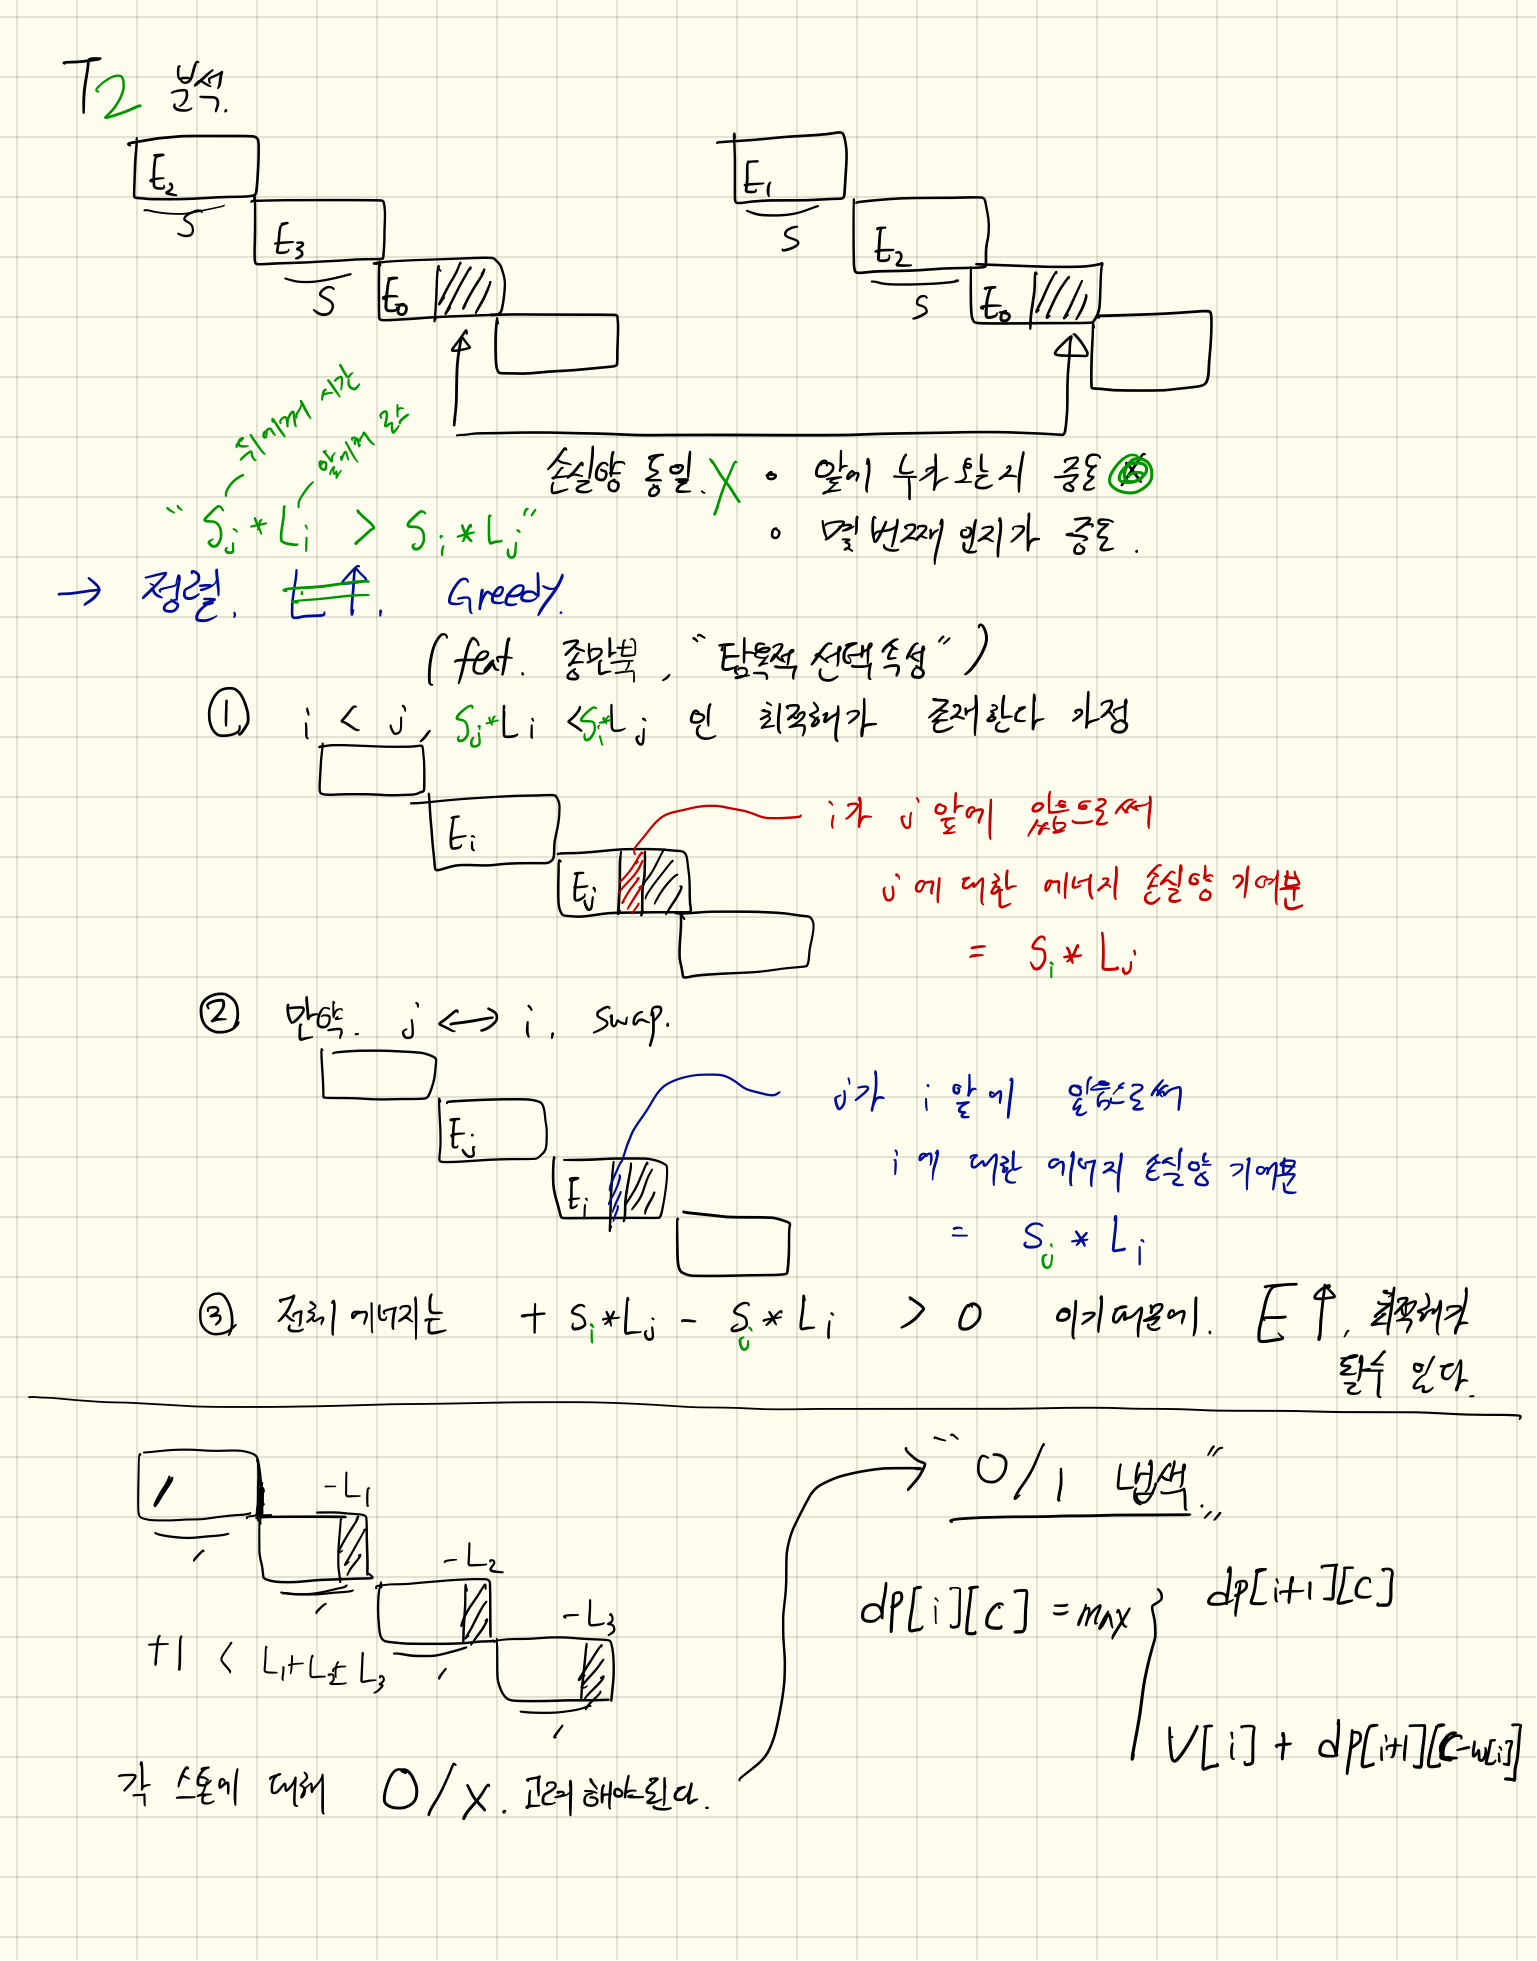 T2 분석.
E₂
S
E₃
S
E₀
E₁
S
E₂
S
E₀
뒤에꺼 시간
앞에꺼 락
손실양 동일. X
• 앞에 누가 오는지 중요
• 몇 번째 인지가 중요.
“Sj * Li > Si * Lj”
→ 정렬. L↑. Greedy.
(feat. 종만북, “탐욕적 선택 속성”)
① i < j, Sj*Li < Si*Lj 인 최적해가 존재한다 가정
Ei
Ej
i가 j 앞에 있음으로써
j에 대한 에너지 손실양 기여분
= Si * Lj
② 만약. j ↔ i. swap.
Ej
Ei
j가 i 앞에 있음으로써
i에 대한 에너지 손실양 기여분
= Sj * Li
③ 전체 에너지는 + Si*Lj - Sj * Li > 0 이기 때문에. E↑. 최적해가
될수 있다.
-L₁
-L₂
-L₃
+1 < L₁+L₂+L₃
각 스톤에 대해 O/X. 고려해야된다.
→ “0/1 냅색..”
dp[i][c] = max
dp[i+1][c]
V[i] + dp[i+1][c-w[i]]